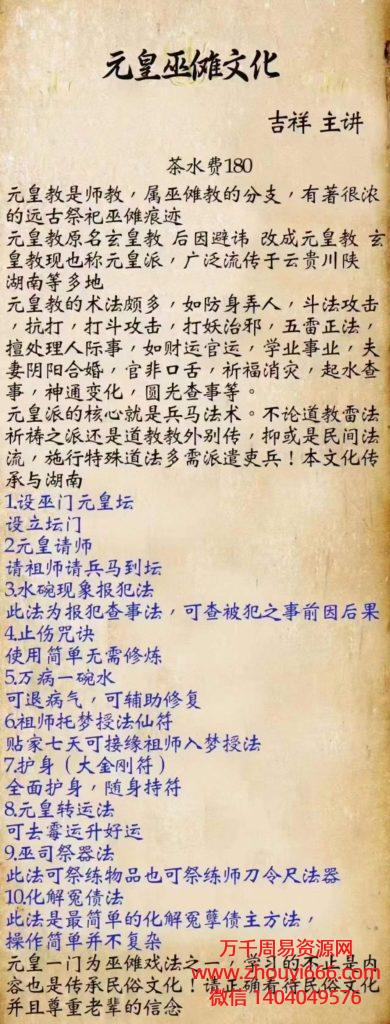 元皇巫傩文化
吉祥 主讲
茶水费180
元皇教是师教，属巫傩教的分支，有著很浓
的远古祭祀巫傩痕迹
元皇教原名玄皇教 后因避讳 改成元皇教 玄
皇教现也称元皇派，广泛流传于云贵川陕
湖南等多地
元皇教的术法颇多，如防身弄人，斗法攻击
，抗打，打斗攻击，打妖治邪，五雷正法，
擅处理人际事，如财运官运，学业事业，夫
妻阴阳合婚，官非口舌，祈福消灾，起水查
事，神通变化，圆光查事等。
元皇派的核心就是兵马法术。不论道教雷法
祈祷之派还是道教教外别传，抑或是民间法
流，施行特殊道法多需派遣吏兵！本文化传
承与湖南
1.设巫门元皇坛
设立坛门
2元皇请师
请祖师请兵马到坛
3.水碗现象报犯法
此法为报犯查事法，可查被犯之事前因后果
4.止伤咒诀
使用简单无需修炼
5.万病一碗水
可退病气，可辅助修复
6.祖师托梦授法仙符
贴家七天可接缘祖师入梦授法
7.护身（大金刚符）
全面护身，随身持符
8.元皇转运法
可去霉运升好运
9.巫司祭器法
此法可祭练物品也可祭练师刀令尺法器
10.化解冤债法
此法是最简单的化解冤孽债主方法，
操作简单并不复杂
元皇一门为巫傩戏法之一，学习的不止是内
容也是传承民俗文化！请正确看待民俗文化
并且尊重老辈的信念
万千周易资源网
www.zhouyi666.com
微信 1404049576